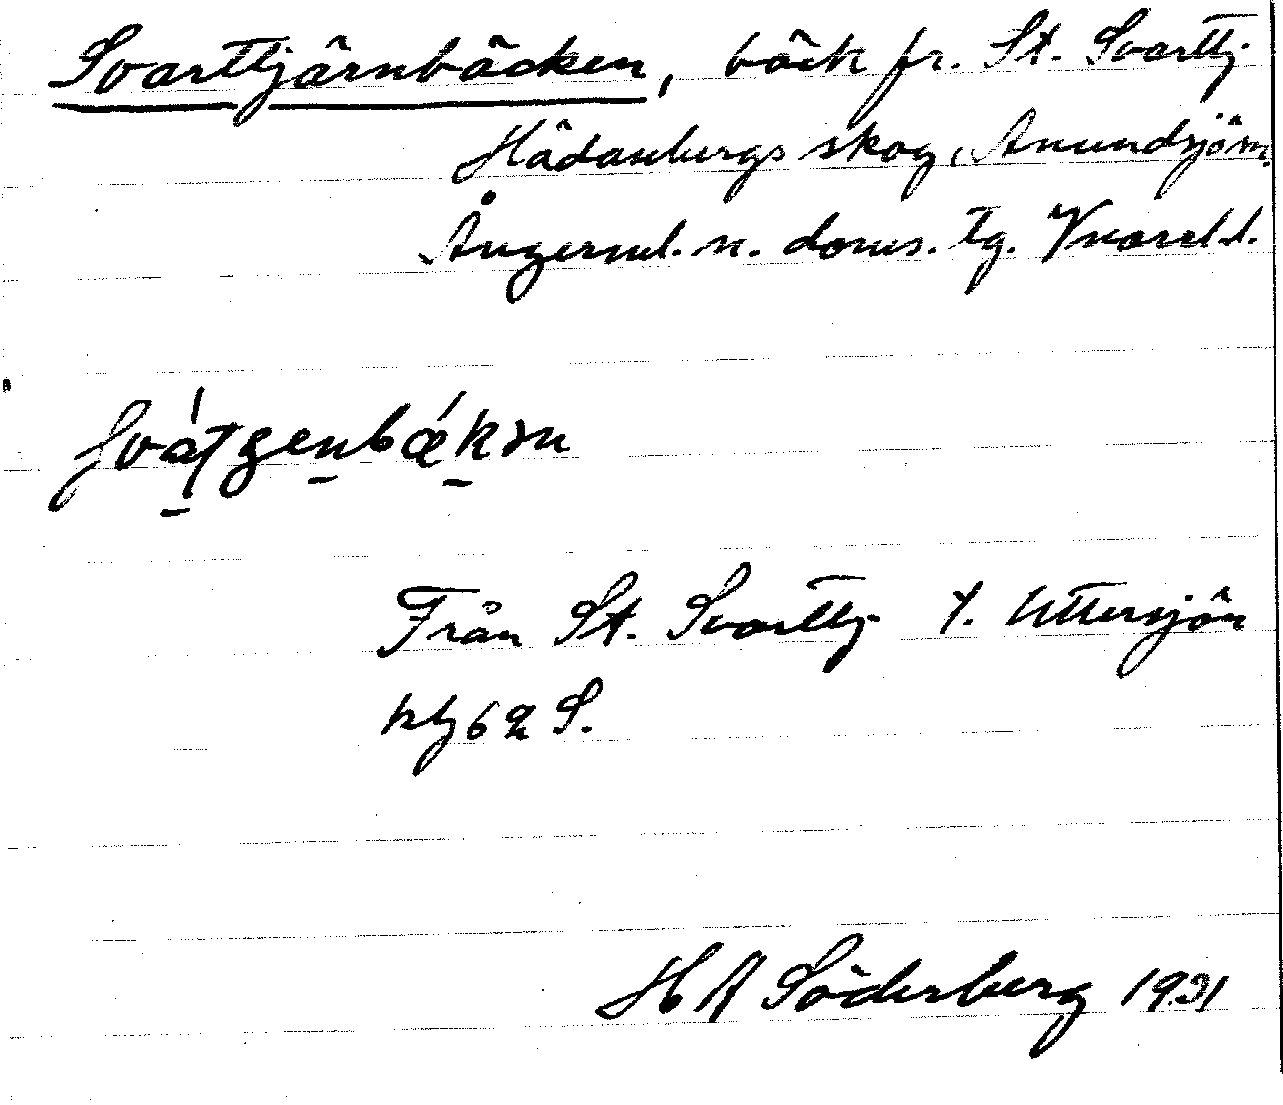 Svarttjärnbäcken, bäck fr. St. Svarttj.
Hädanbergs skog, Anundsjö sn.
Ångerml. n. doms. tg. Västernl. l.
Från St. Svarttj. t. Uttersjön
H A Söderberg 1931